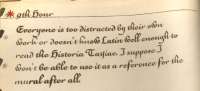 9th Hour
Everyone is too distracted by their own
work or doesn't know Latin well enough to
read the Historia Tasiae. I suppose I
won't be able to use it as a reference for the
mural after all.